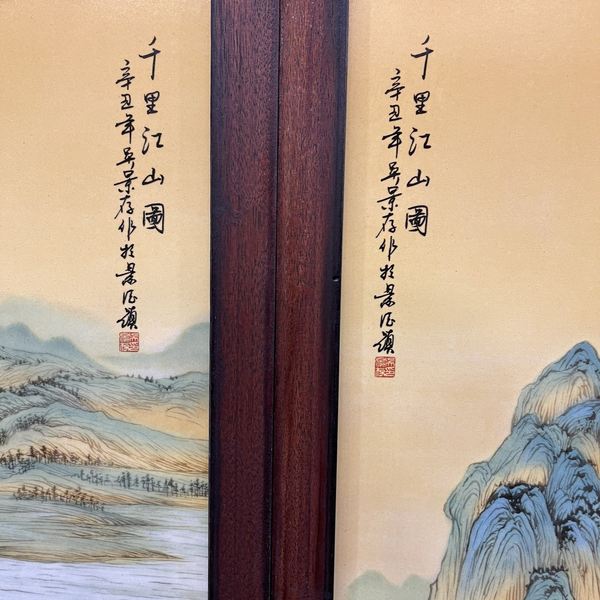 千里江山圖
辛丑年吳景存作於景德鎮
千里江山圖
辛丑年吳景存作於景德鎮